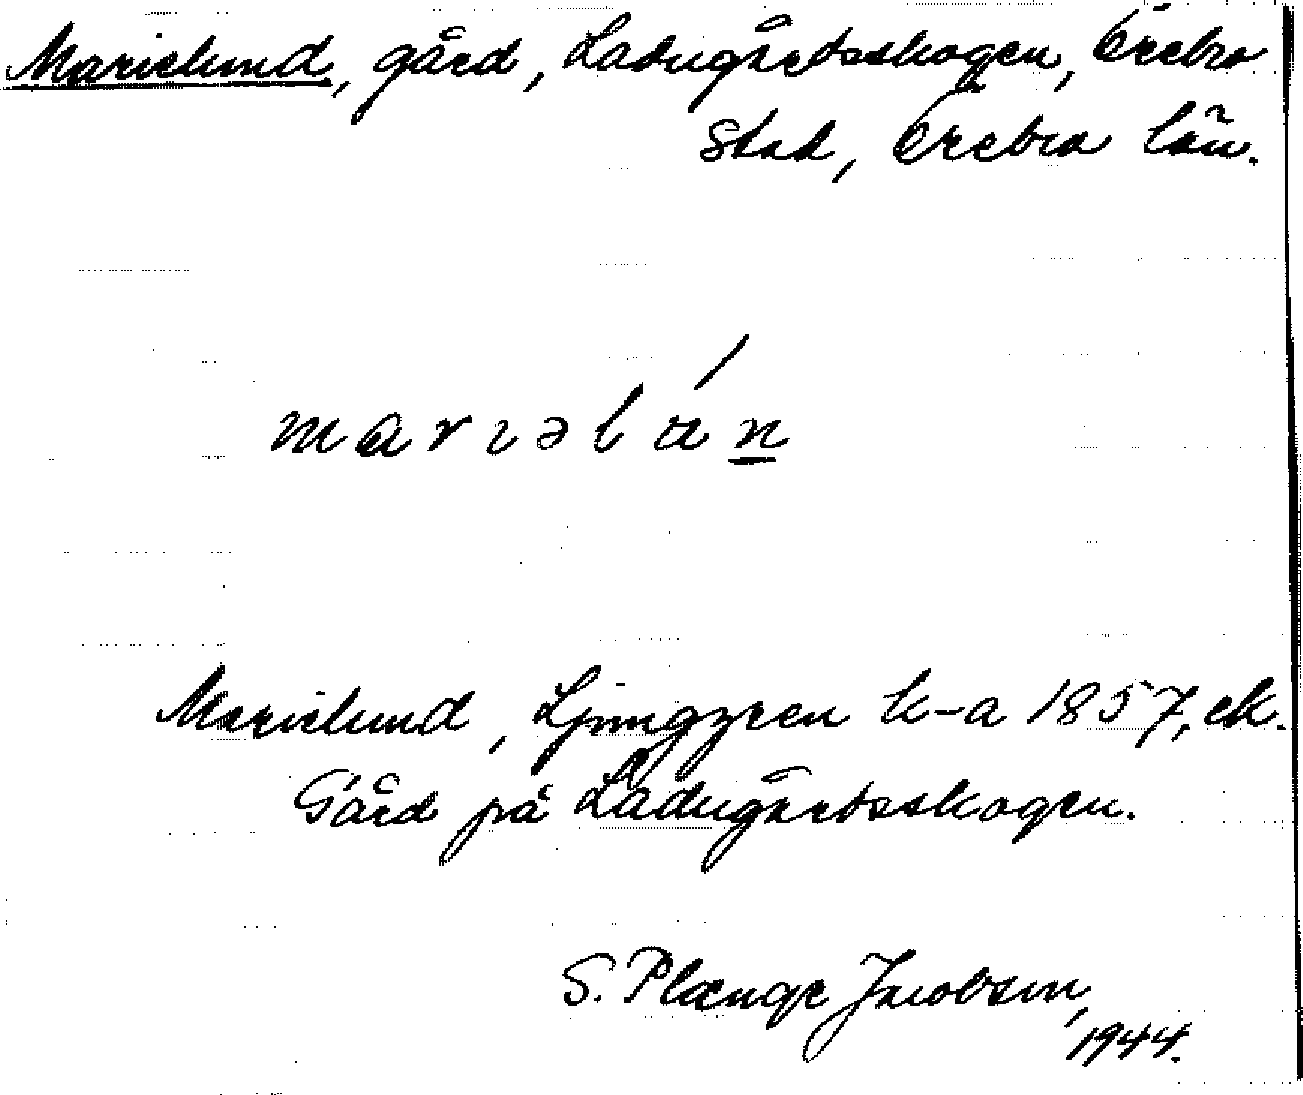 Marielund, gård, Ladugårdsskogen, Örebro
stad, Örebro län.
marıəlún
Marielund, Ljunggren k-a 1857, ek.
Gård på Ladugårdsskogen.
S. Plænge Jacobson,
1944.